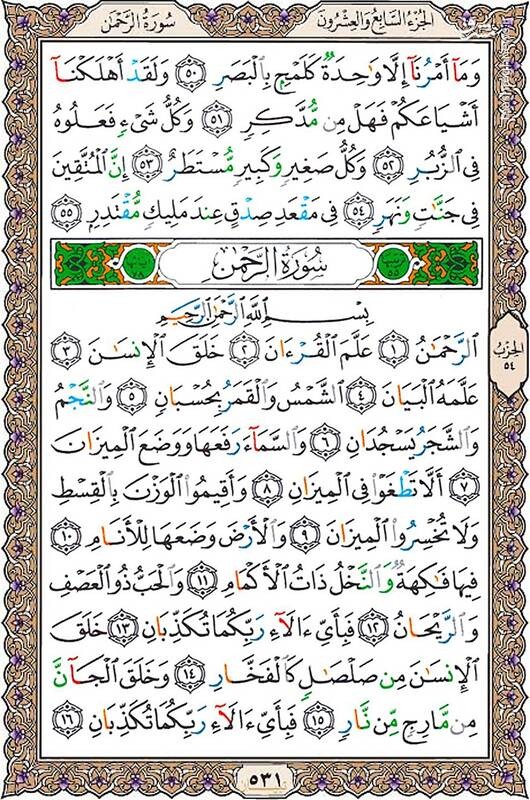 الجزء السابع والعشرون
سورة الرحمن
وَمَآ أَمْرُنَآ إِلَّا وَٰحِدَةٌ كَلَمْحٍۭ بِٱلْبَصَرِ ٥٠ وَلَقَدْ أَهْلَكْنَآ
أَشْيَاعَكُمْ فَهَلْ مِن مُّدَّكِرٍ ٥١ وَكُلُّ شَىْءٍ فَعَلُوهُ
فِى ٱلزُّبُرِ ٥٢ وَكُلُّ صَغِيرٍ وَكَبِيرٍ مُّسْتَطَرٌ ٥٣ إِنَّ ٱلْمُتَّقِينَ
فِى جَنَّٰتٍ وَنَهَرٍ ٥٤ فِى مَقْعَدِ صِدْقٍ عِندَ مَلِيكٍ مُّقْتَدِرٍۭ ٥٥
سُورَةُ الرَّحْمٰن
بِسْمِ ٱللَّهِ ٱلرَّحْمَٰنِ ٱلرَّحِيمِ
ٱلرَّحْمَٰنُ ١ عَلَّمَ ٱلْقُرْءَانَ ٢ خَلَقَ ٱلْإِنسَٰنَ ٣
عَلَّمَهُ ٱلْبَيَانَ ٤ ٱلشَّمْسُ وَٱلْقَمَرُ بِحُسْبَانٍ ٥ وَٱلنَّجْمُ
وَٱلشَّجَرُ يَسْجُدَانِ ٦ وَٱلسَّمَآءَ رَفَعَهَا وَوَضَعَ ٱلْمِيزَانَ
٧ أَلَّا تَطْغَوْا۟ فِى ٱلْمِيزَانِ ٨ وَأَقِيمُوا۟ ٱلْوَزْنَ بِٱلْقِسْطِ
وَلَا تُخْسِرُوا۟ ٱلْمِيزَانَ ٩ وَٱلْأَرْضَ وَضَعَهَا لِلْأَنَامِ ١٠
فِيهَا فَٰكِهَةٌ وَٱلنَّخْلُ ذَاتُ ٱلْأَكْمَامِ ١١ وَٱلْحَبُّ ذُو ٱلْعَصْفِ
وَٱلرَّيْحَانُ ١٢ فَبِأَىِّ ءَالَآءِ رَبِّكُمَا تُكَذِّبَانِ ١٣ خَلَقَ
ٱلْإِنسَٰنَ مِن صَلْصَٰلٍ كَٱلْفَخَّارِ ١٤ وَخَلَقَ ٱلْجَآنَّ
مِن مَّارِجٍ مِّن نَّارٍ ١٥ فَبِأَىِّ ءَالَآءِ رَبِّكُمَا تُكَذِّبَانِ ١٦
الحزب
٥٤
٥٣١